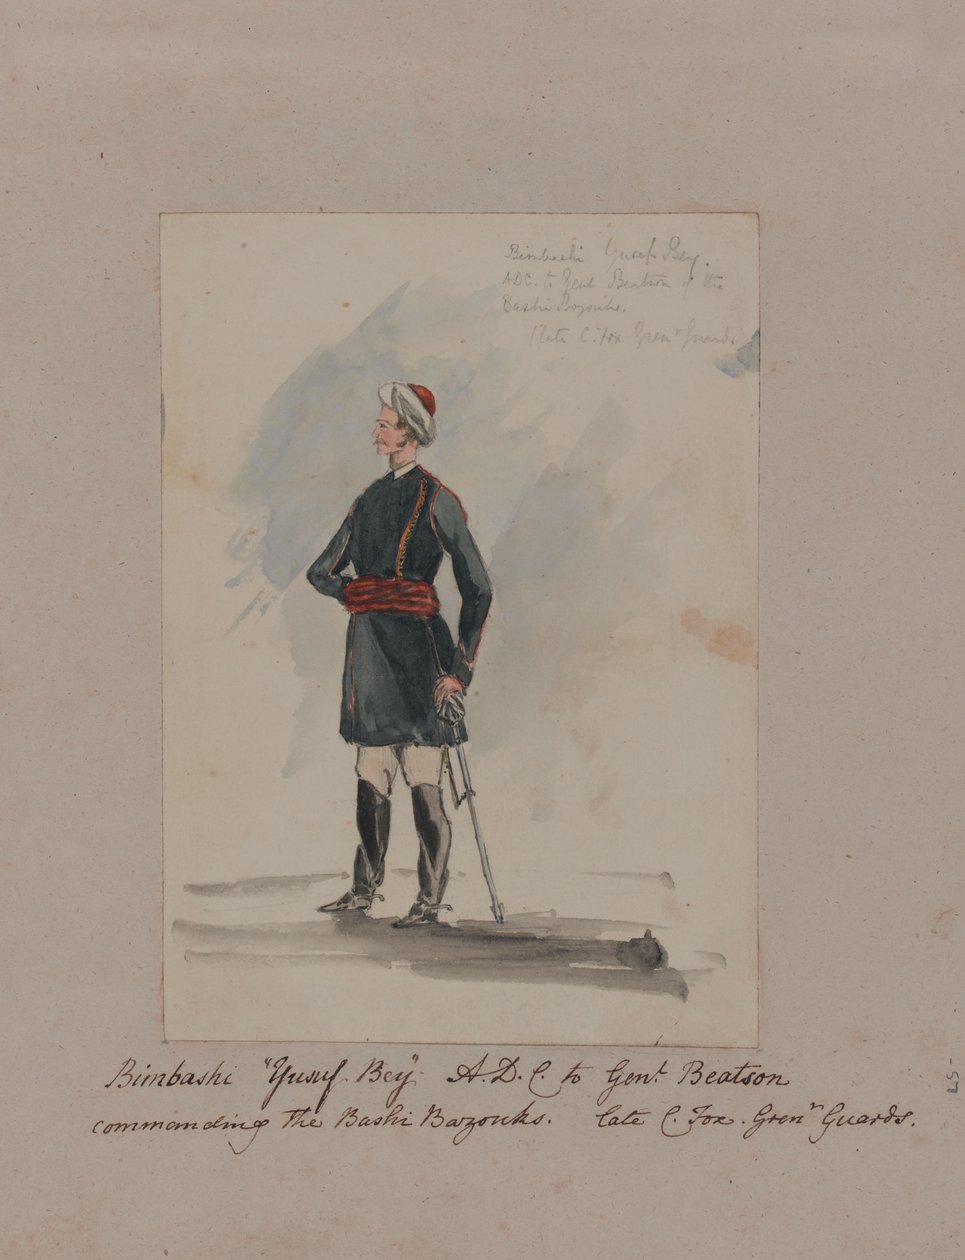 Bimbashi Yusuf Bey.
ADC. to Genl Beatson of the
Bashi Bazouks.
(late C. Fox Grenr Guards)
Bimbashi "Yusuf Bey" A.D.C. to Genl Beatson
commanding the Bashi Bazouks. late C. Fox. Grenr Guards.
57